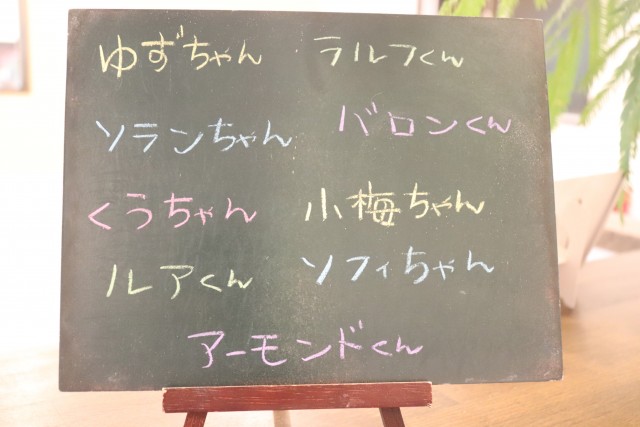 ゆずちゃん ラルフくん
ソランちゃん バロンくん
くうちゃん 小梅ちゃん
ルアくん ソフィちゃん
アーモンドくん